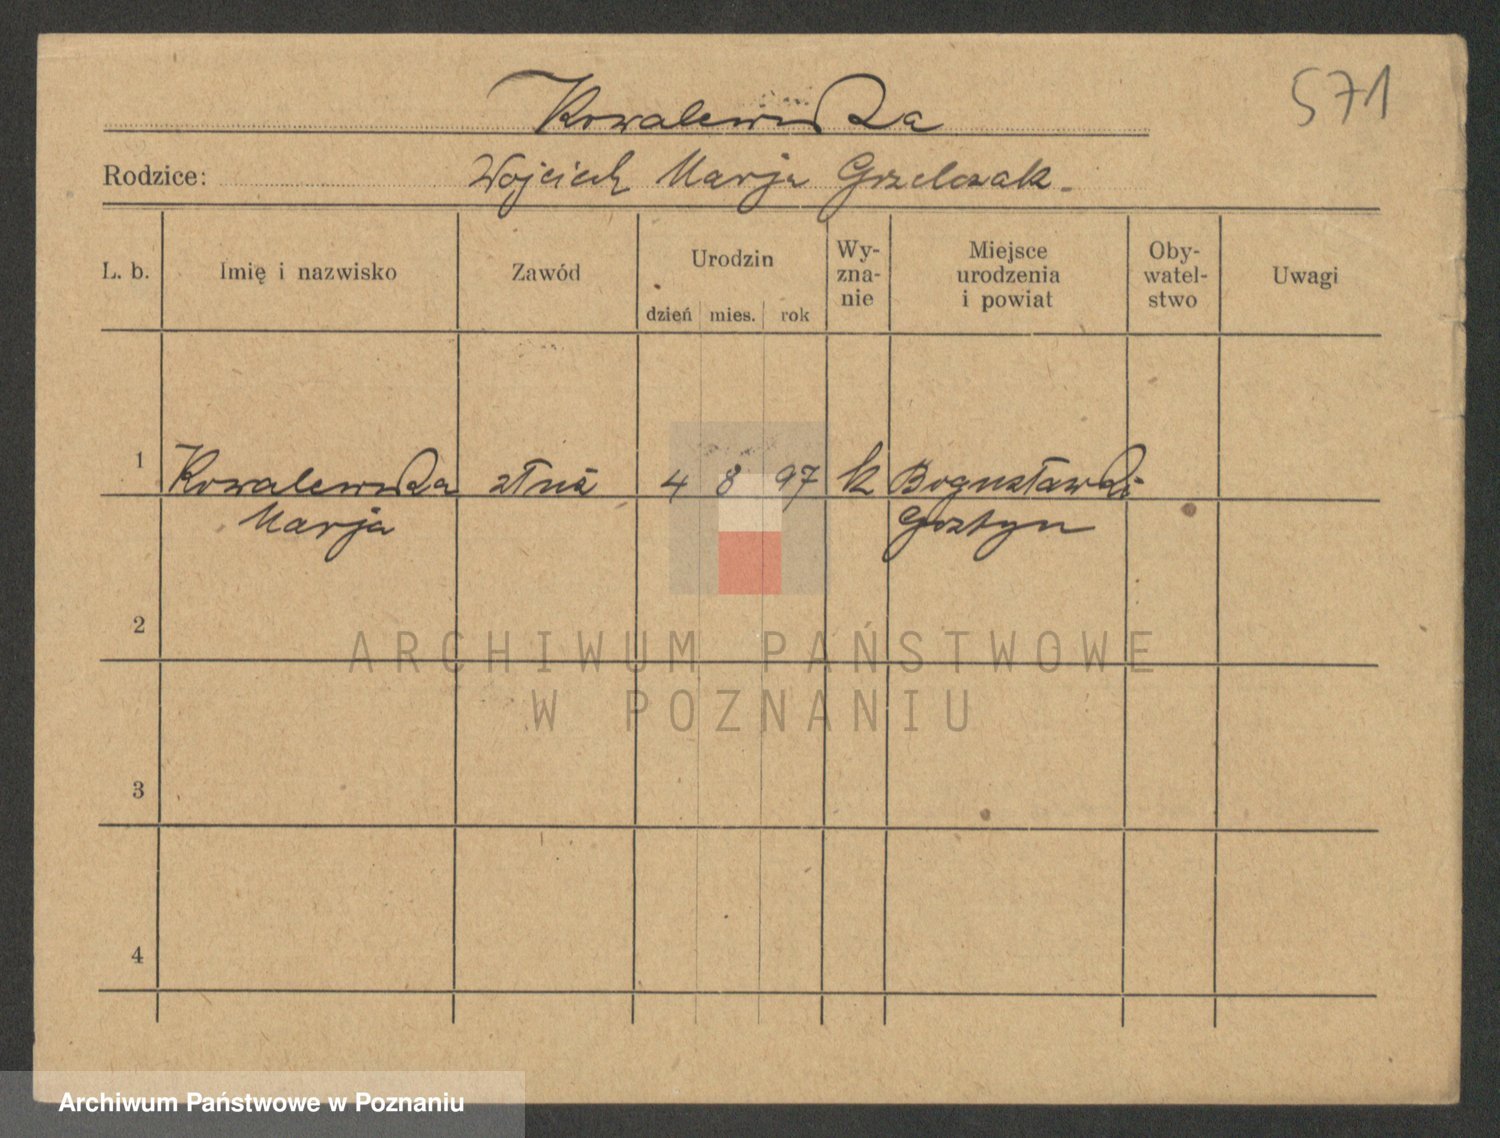 571
Kowalewska
Rodzice: Wojciech Marja Grzelczak
L. b. Imię i nazwisko Zawód Urodzin dzień mies. rok Wy-
zna-
nie Miejsce
urodzenia
i powiat Oby-
watel-
stwo Uwagi
1 Kowalewska służ 4 8 97 k Bogusławki
Marja Gostyn
2
3
4
ARCHIWUM PAŃSTWOWE
W POZNANIU
Archiwum Państwowe w Poznaniu